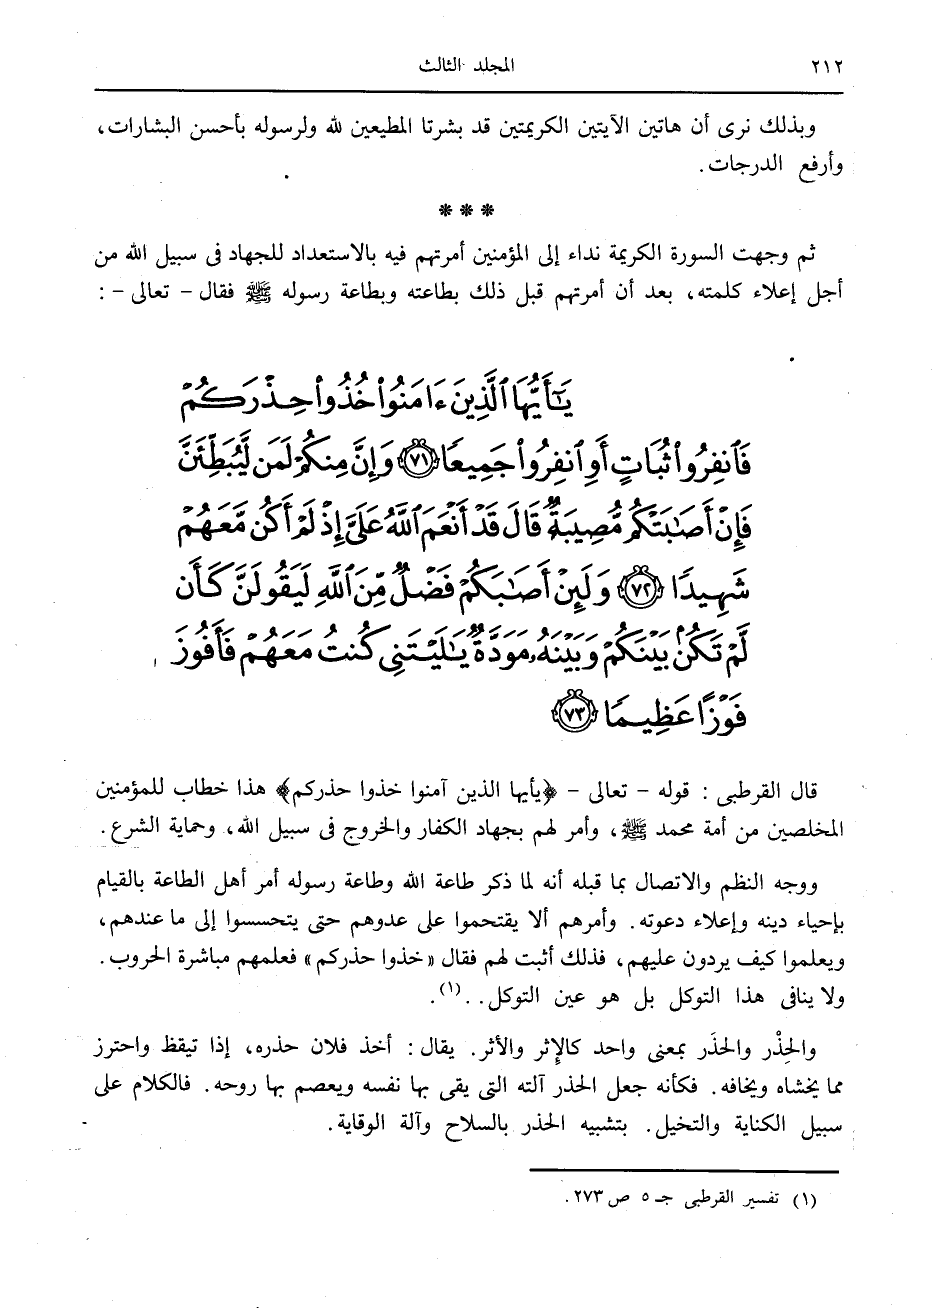 ٢١٢ المجلد الثالث
وبذلك نرى أن هاتين الآيتين الكريمتين قد بشرتا المطيعين لله ولرسوله بأحسن البشارات،
وأرفع الدرجات.
* * *
ثم وجهت السورة الكريمة نداء إلى المؤمنين أمرتهم فيه بالاستعداد للجهاد فى سبيل الله من
أجل إعلاء كلمته، بعد أن أمرتهم قبل ذلك بطاعته وبطاعة رسوله ﷺ فقال - تعالى - :
يَٰٓأَيُّهَا ٱلَّذِينَ ءَامَنُوا۟ خُذُوا۟ حِذْرَكُمْ
فَٱنفِرُوا۟ ثُبَاتٍ أَوِ ٱنفِرُوا۟ جَمِيعًا ﴿٧١﴾ وَإِنَّ مِنكُمْ لَمَن لَّيُبَطِّئَنَّ
فَإِنْ أَصَٰبَتْكُم مُّصِيبَةٌ قَالَ قَدْ أَنْعَمَ ٱللَّهُ عَلَىَّ إِذْ لَمْ أَكُن مَّعَهُمْ
شَهِيدًا ﴿٧٢﴾ وَلَئِنْ أَصَٰبَكُمْ فَضْلٌ مِّنَ ٱللَّهِ لَيَقُولَنَّ كَأَن
لَّمْ تَكُنۢ بَيْنَكُمْ وَبَيْنَهُۥ مَوَدَّةٌ يَٰلَيْتَنِى كُنتُ مَعَهُمْ فَأَفُوزَ
فَوْزًا عَظِيمًا ﴿٧٣﴾
قال القرطبى : قوله - تعالى - ﴿يأيها الذين آمنوا خذوا حذركم﴾ هذا خطاب للمؤمنين
المخلصين من أمة محمد ﷺ، وأمر لهم بجهاد الكفار والخروج فى سبيل الله، وحماية الشرع.
ووجه النظم والاتصال بما قبله أنه لما ذكر طاعة الله وطاعة رسوله أمر أهل الطاعة بالقيام
بإحياء دينه وإعلاء دعوته. وأمرهم ألا يقتحموا على عدوهم حتى يتحسسوا إلى ما عندهم،
ويعلموا كيف يردون عليهم، فذلك أثبت لهم فقال «خذوا حذركم» فعلمهم مباشرة الحروب.
ولا ينافى هذا التوكل بل هو عين التوكل. .(١).
والحِذْر والحذَر بمعنى واحد كالإِثر والأثر. يقال: أخذ فلان حذره، إذا تيقظ واحترز
مما يخشاه ويخافه. فكأنه جعل الحذر آلته التى يقى بها نفسه ويعصم بها روحه. فالكلام على
سبيل الكناية والتخيل. بتشبيه الحذر بالسلاح وآلة الوقاية.
(١) تفسير القرطبى جـ ٥ ص ٢٧٣.